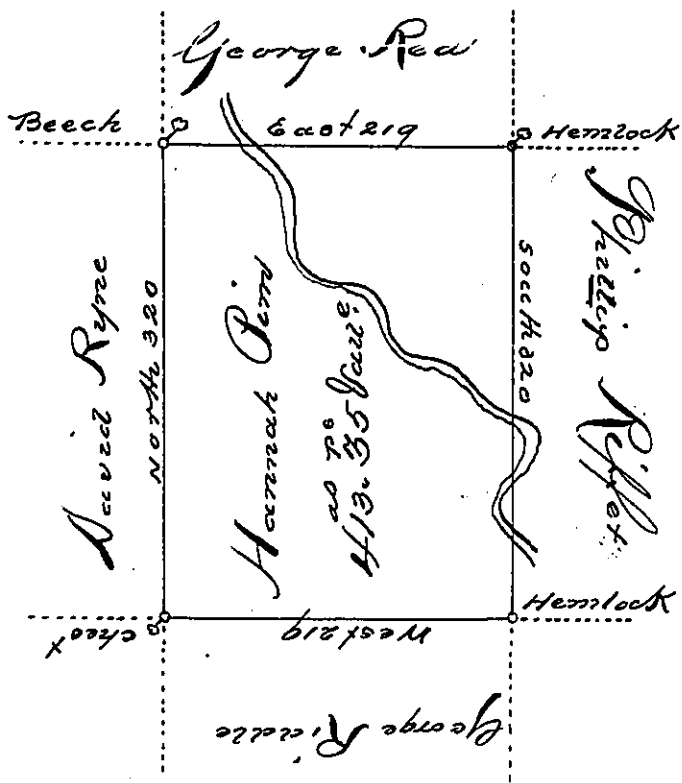 George Rea
Beech
East 219
Hemlock
David Ryne
North 320
Hannah Pim
as ps
413.35 Vall e
South 320
Phillip Riffet
Hemlock
Chest
West 219
George Riddle